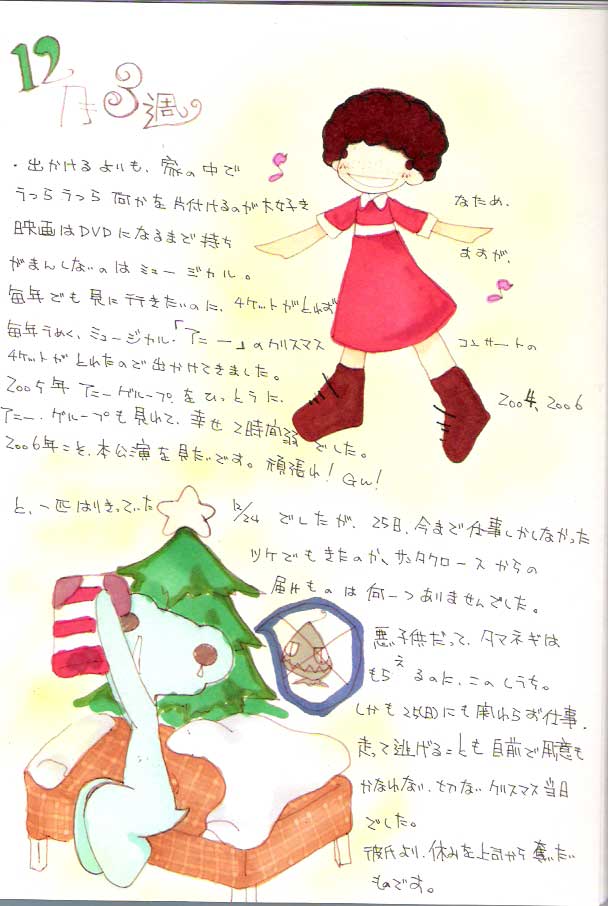 12月3週
・出かけるよりも、家の中で
うっらうっら何かを片付けるのが大好きなため、
映画はDVDになるまで待ちますが、
がまんしないのはミュージカル。
毎年でも見に行きたいのに、チケットがとれず
毎年うめく、ミュージカル・「アニー」のクリスマスコンサートの
チケットがとれたので出かけてきました。
2005年アニーグループをひっとうに、2004、2006
アニー・グループも見れて、幸せ2時間弱でした。
2006年こそ、本公演を見たいです。頑張れ!GW!
と、一匹はりきっていた12/24でしたが、25日、今まで仕事しかしなかった
ツケでもきたのか、サンタクロースからの
届けものは何一つありませんでした。
悪子供だって、タマネギは
もらえるのに、このしうち。
しかも25(日)にも関わらずお仕事。
走って逃げることも自前で用意も
かなわない、切ないクリスマス当日
でした。
彼氏より、休みを上司から奪いたい
ものです。